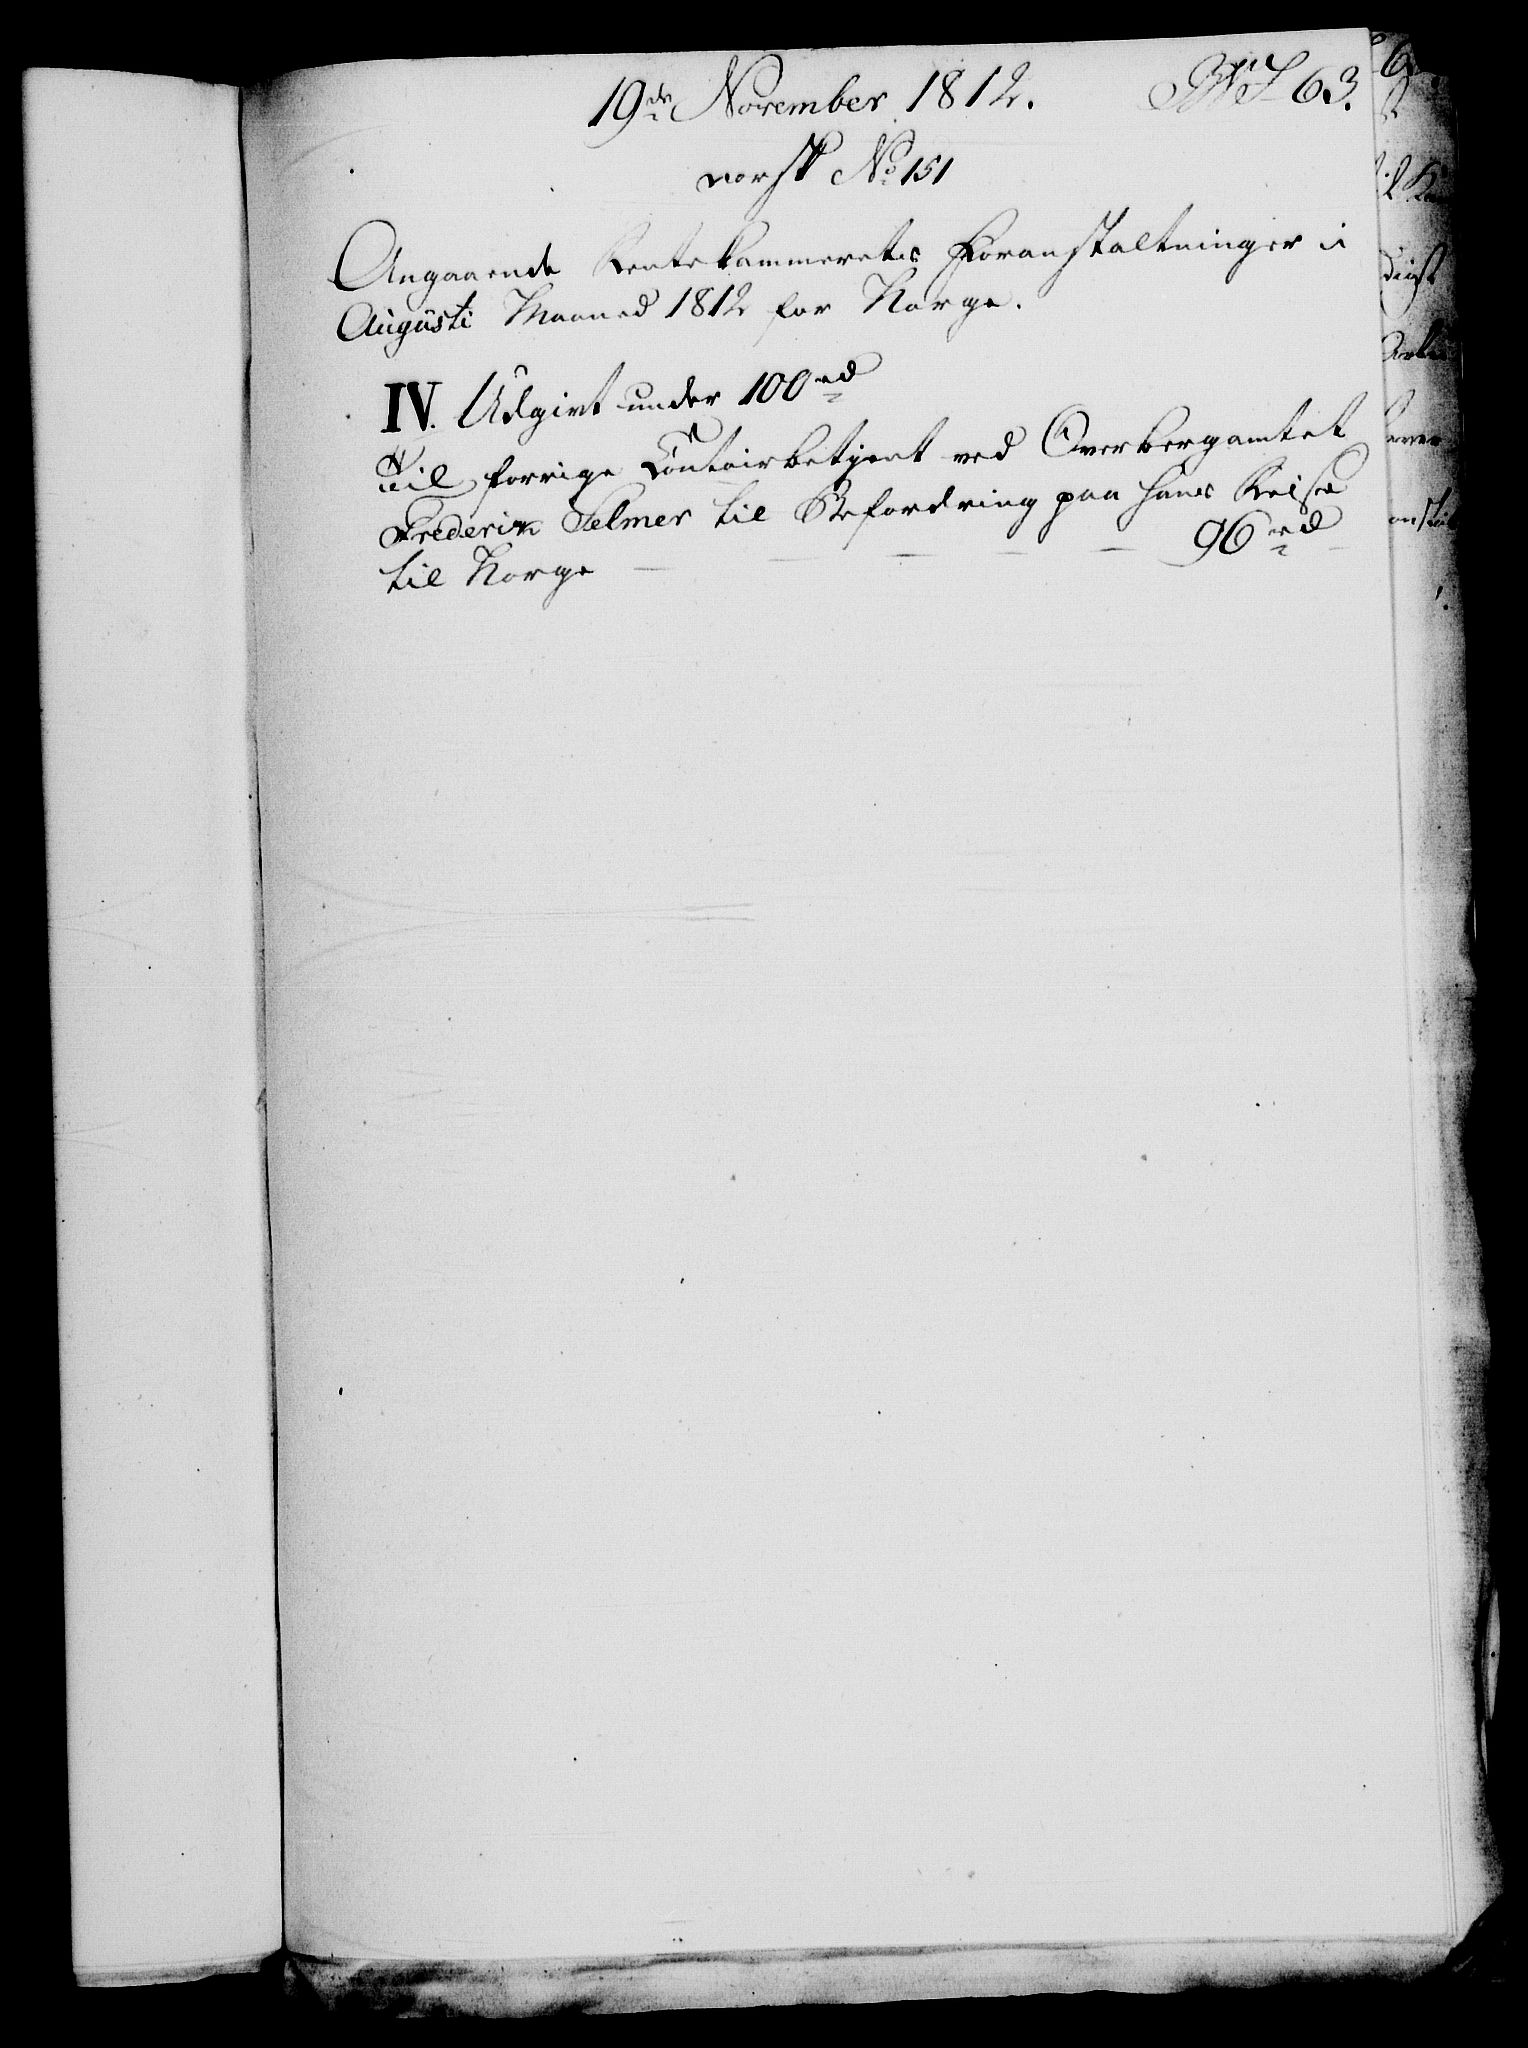 19de November 1812. 63.
norsk No 151
Angaaende Rentekammerets Foranstaltninger i
Augusti Maaned 1812 for Norge.
IV. Udgivt under 100 rd
Til forrige Contoirbetjent ved Overbergamtet
Frederik Selmer til Befordring paa hans Reise
til Norge — — — — — 96 rd